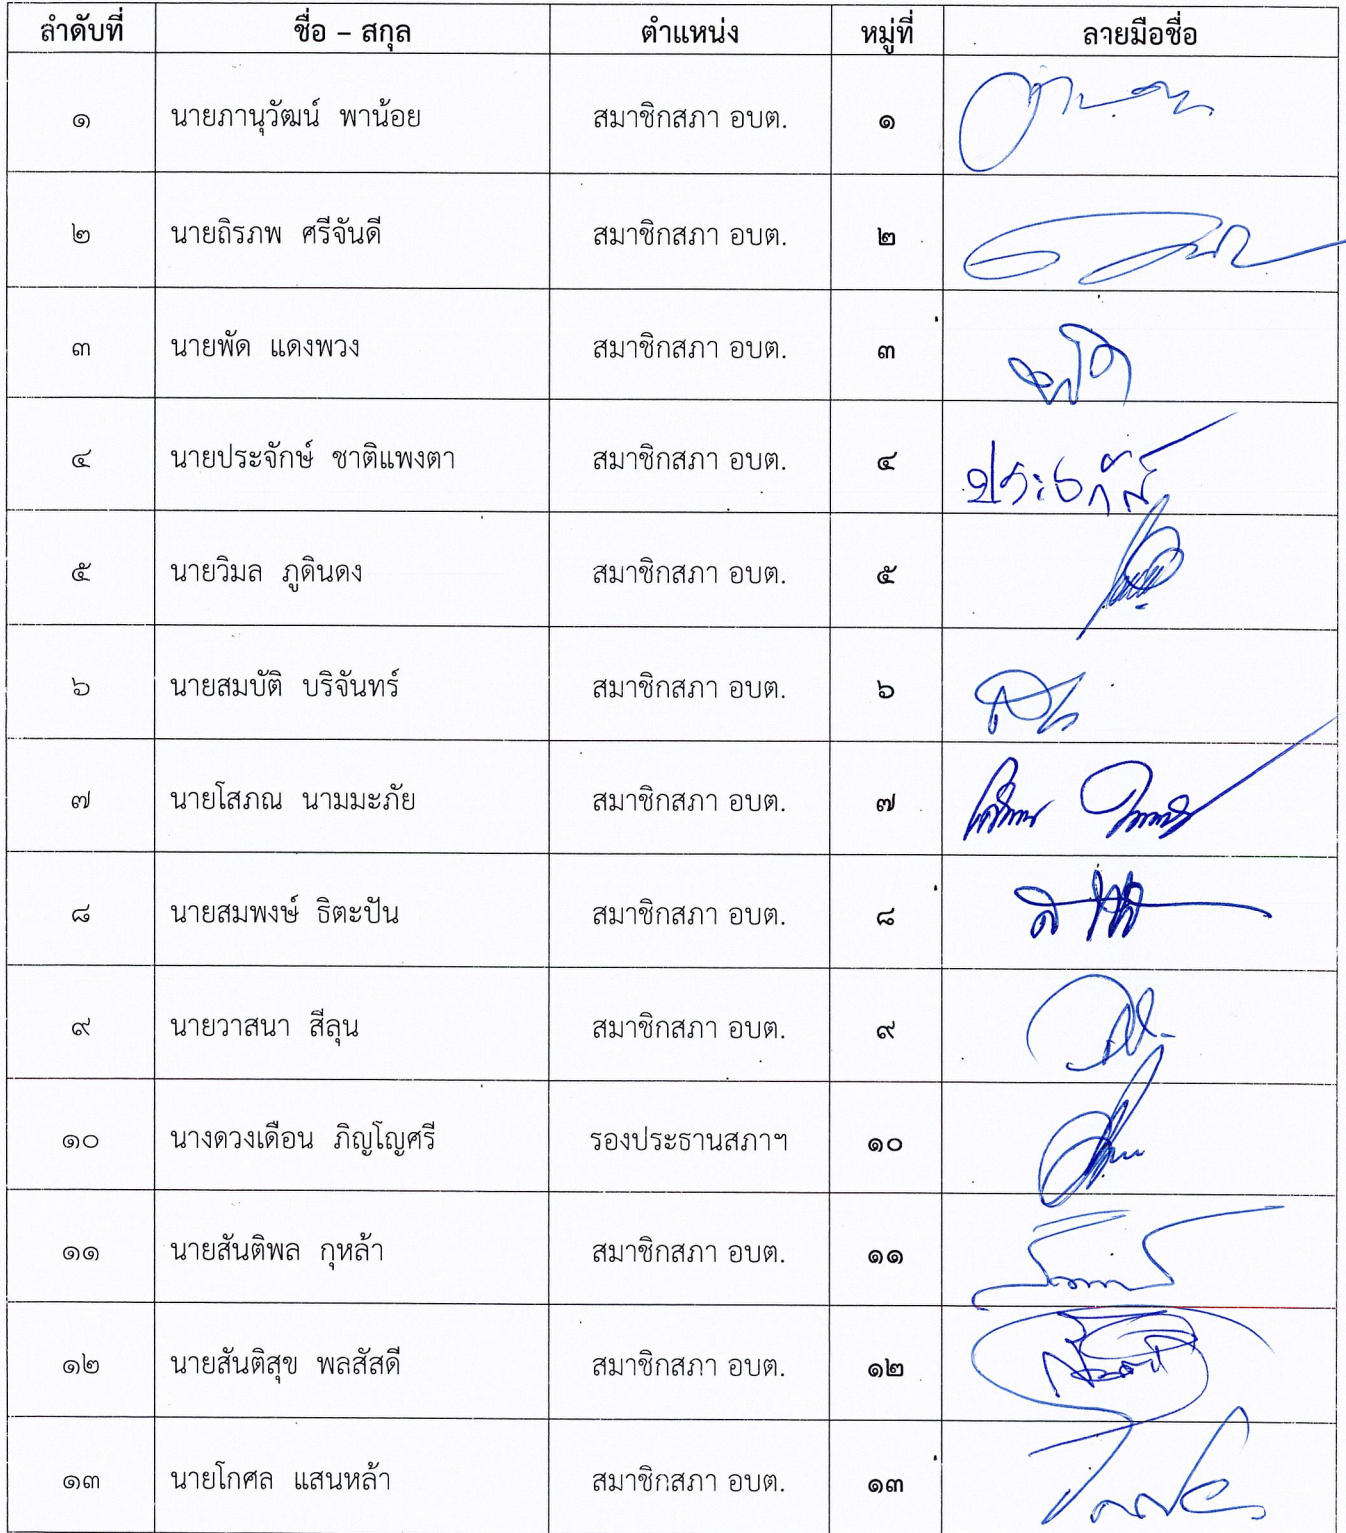 ลำดับที่ ชื่อ – สกุล ตำแหน่ง หมู่ที่ ลายมือชื่อ
๑ นายภานุวัฒน์ พาน้อย สมาชิกสภา อบต. ๑
๒ นายถิรภพ ศรีจันดี สมาชิกสภา อบต. ๒
๓ นายพัด แดงพวง สมาชิกสภา อบต. ๓
๔ นายประจักษ์ ชาติแพงตา สมาชิกสภา อบต. ๔
๕ นายวิมล ภูดินดง สมาชิกสภา อบต. ๕
๖ นายสมบัติ บริจันทร์ สมาชิกสภา อบต. ๖
๗ นายโสภณ นามมะภัย สมาชิกสภา อบต. ๗
๘ นายสมพงษ์ ธิตะปัน สมาชิกสภา อบต. ๘
๙ นายวาสนา สีลุน สมาชิกสภา อบต. ๙
๑๐ นางดวงเดือน ภิญโญศรี รองประธานสภาฯ ๑๐
๑๑ นายสันติพล กุหล้า สมาชิกสภา อบต. ๑๑
๑๒ นายสันติสุข พลสัสดี สมาชิกสภา อบต. ๑๒
๑๓ นายโกศล แสนหล้า สมาชิกสภา อบต. ๑๓